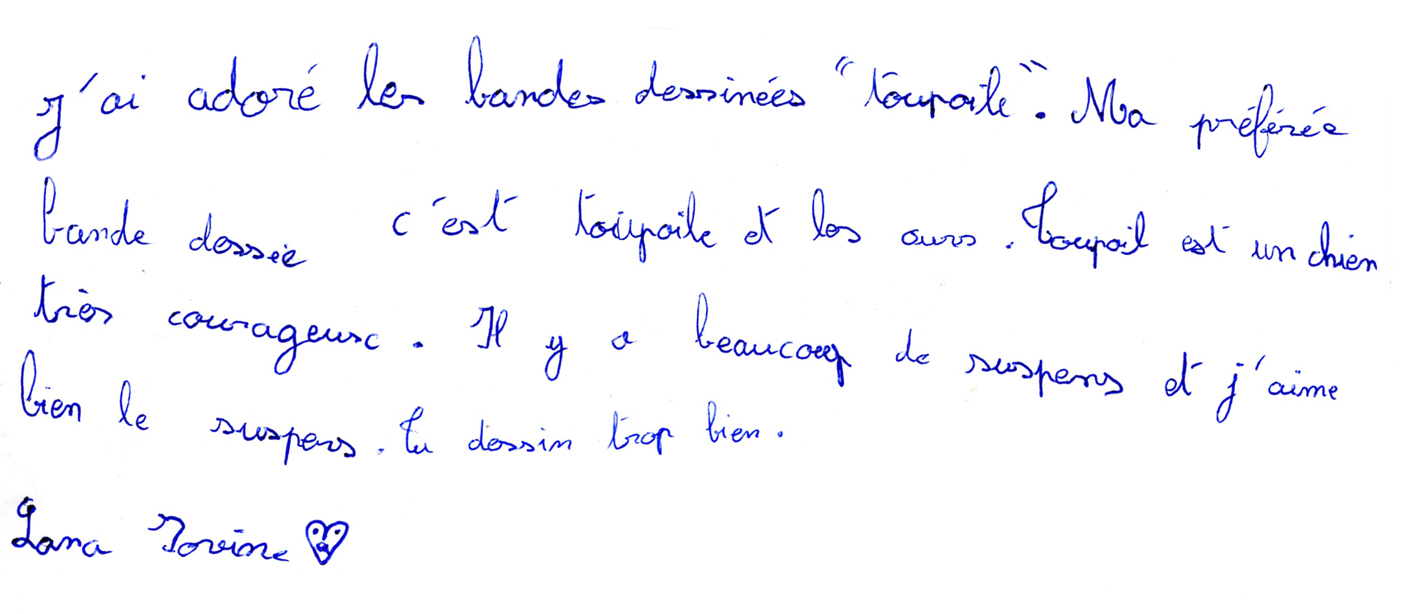 J'ai adoré les bandes dessinées "toupoile". Ma préférée
bande dessiée c'est toupoile et les ours. Toupoil est un chien
très courageusc. Il y a beaucoup de suspens et j'aime
bien le suspens. Tu dessin trop bien.
Lana Iovine